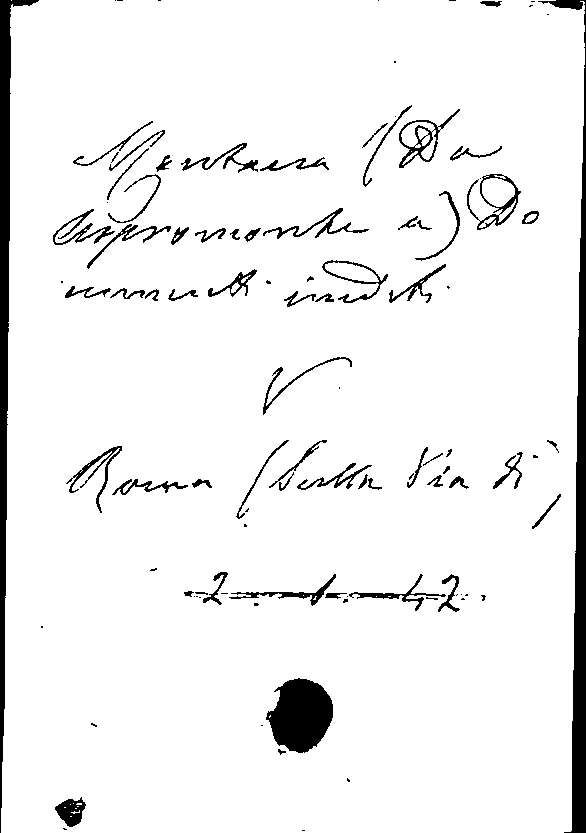 Mentana (Da
Aspromonte a) Do
cumenti inediti
V
Roma (Sulla Via di)
2. 1. 42